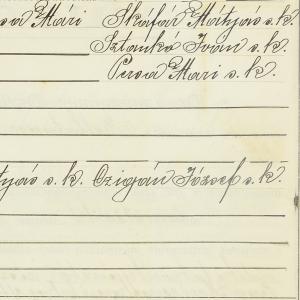 Mári Skáfár Mátyás s. k.
Sztankó Iván s. k.
Persa Mari s. k.
s. k. Czigán József s. k.